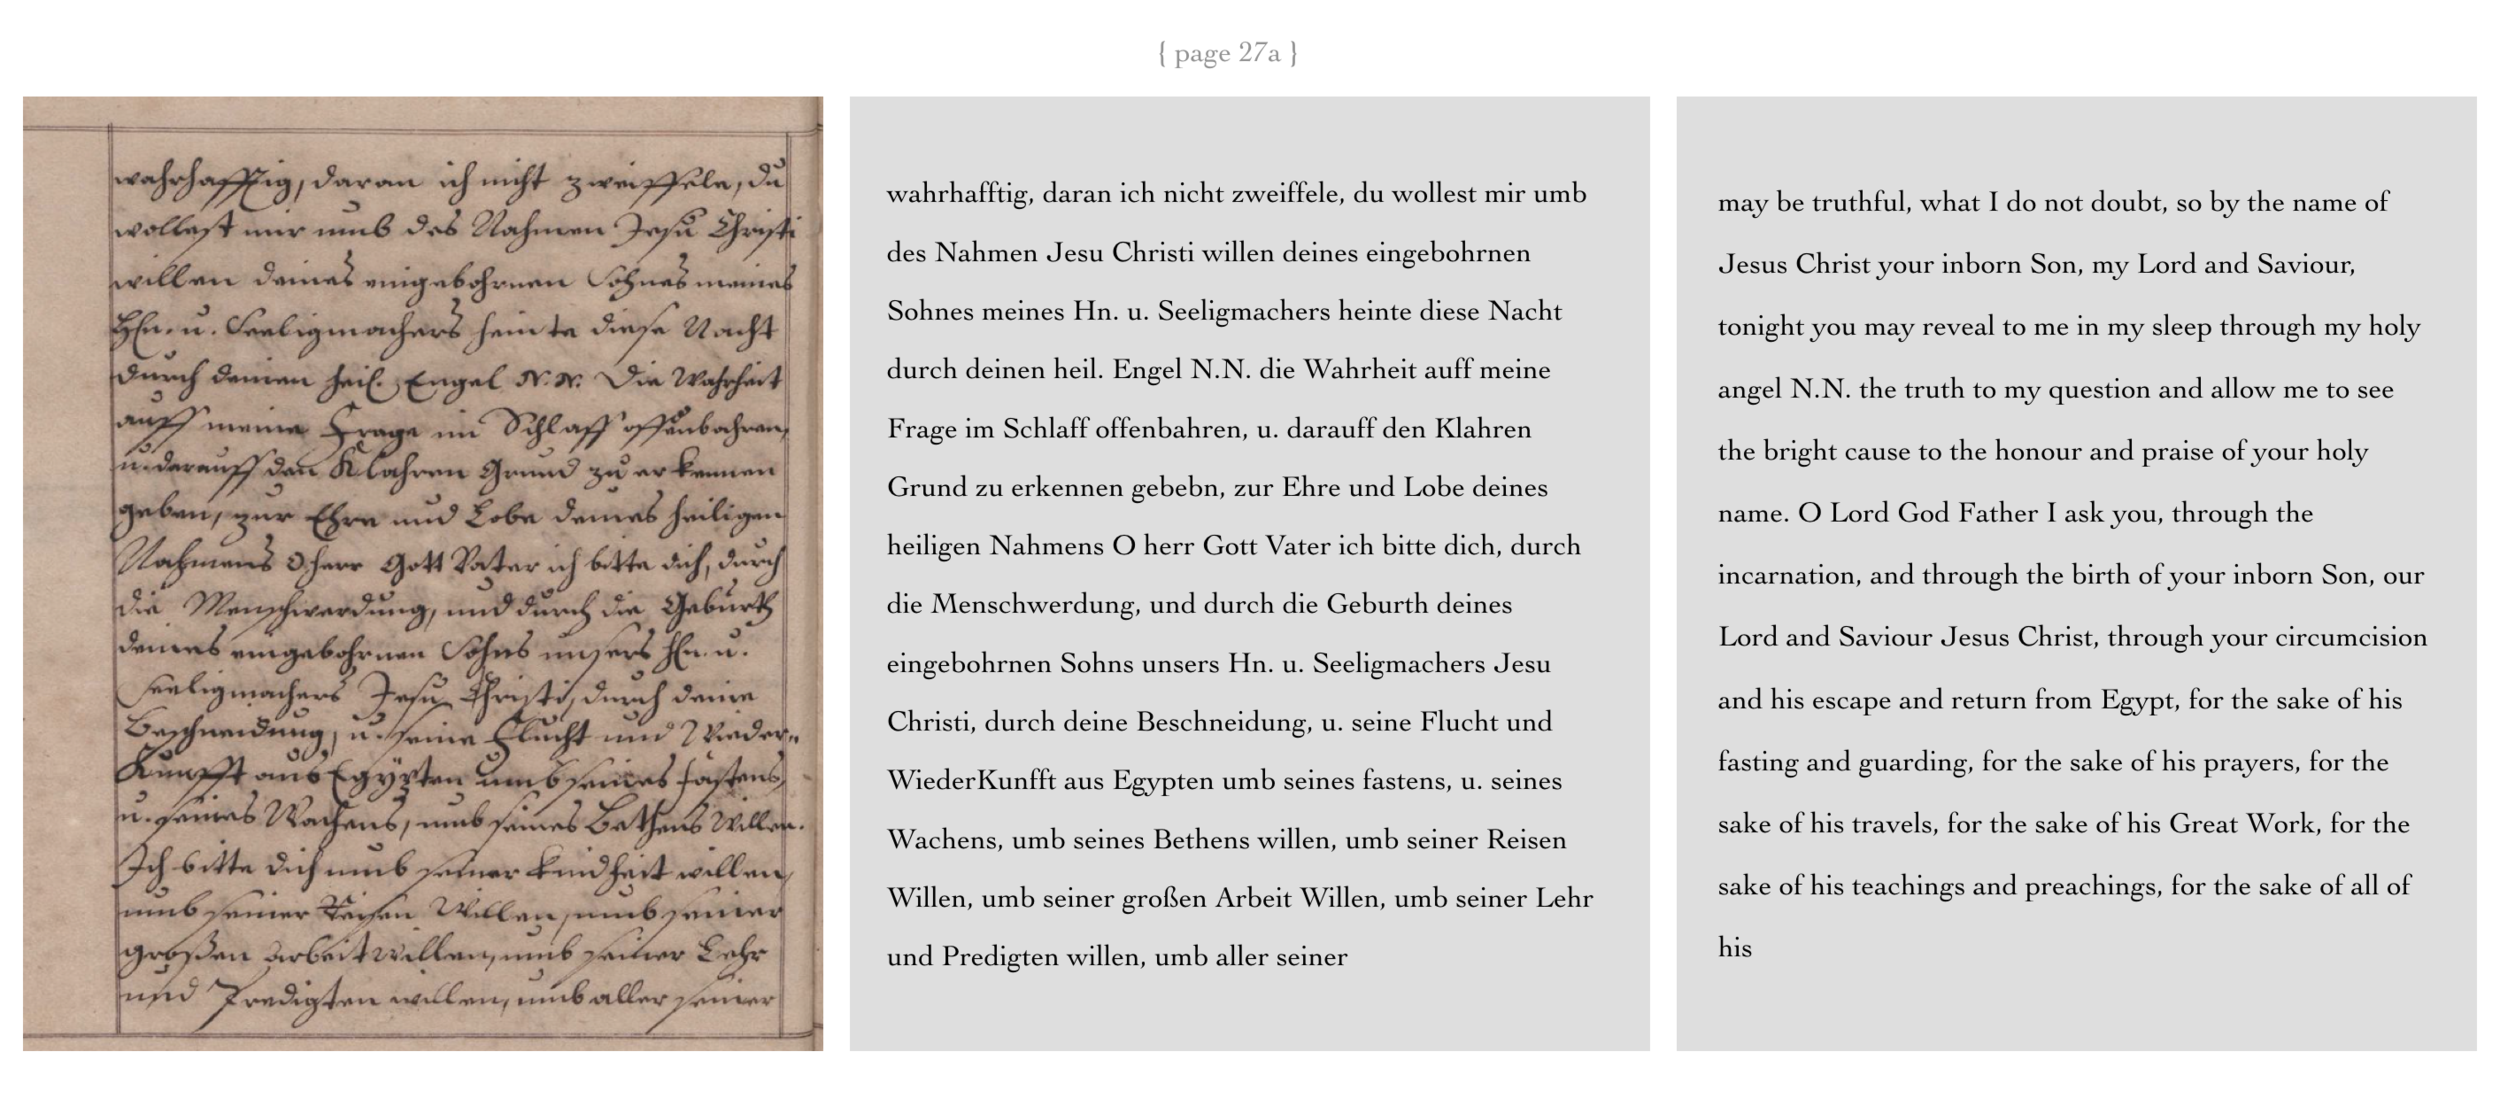 { page 27a }
wahrhafftig, daran ich nicht zweiffele, du
wollest mir umb des Nahmen Jesu Christi
willen deines eingebohrnen Sohnes meines
Hn. u. Seeligmachers heinte diese Nacht
durch deinen heil. Engel N. N. die Wahrheit
auff meine Frage im Schlaff offenbahren,
u. darauff den Klahren Grund zu erkennen
geben, zur Ehre und Lobe deines heiligen
Nahmens O herr Gott Vater ich bitte dich, durch
die Menschwerdung, und durch die Geburth
deines eingebohrnen Sohns unsers Hn. u.
Seeligmachers Jesu Christi, durch deine
Beschneidung, u. seine Flucht und Wieder„
Kunfft aus Egypten umb seines fastens,
u. seines Wachens, umb seines Bethens Willen.
Ich bitte dich umb seiner Kindheit willen,
umb seiner Reisen Willen, umb seiner
großen Arbeit willen, umb seiner Lehr
und Predigten willen, umb aller seiner
wahrhafftig, daran ich nicht zweiffele, du wollest mir umb
des Nahmen Jesu Christi willen deines eingebohrnen
Sohnes meines Hn. u. Seeligmachers heinte diese Nacht
durch deinen heil. Engel N.N. die Wahrheit auff meine
Frage im Schlaff offenbahren, u. darauff den Klahren
Grund zu erkennen gebebn, zur Ehre und Lobe deines
heiligen Nahmens O herr Gott Vater ich bitte dich, durch
die Menschwerdung, und durch die Geburth deines
eingebohrnen Sohns unsers Hn. u. Seeligmachers Jesu
Christi, durch deine Beschneidung, u. seine Flucht und
WiederKunfft aus Egypten umb seines fastens, u. seines
Wachens, umb seines Bethens willen, umb seiner Reisen
Willen, umb seiner großen Arbeit Willen, umb seiner Lehr
und Predigten willen, umb aller seiner
may be truthful, what I do not doubt, so by the name of
Jesus Christ your inborn Son, my Lord and Saviour,
tonight you may reveal to me in my sleep through my holy
angel N.N. the truth to my question and allow me to see
the bright cause to the honour and praise of your holy
name. O Lord God Father I ask you, through the
incarnation, and through the birth of your inborn Son, our
Lord and Saviour Jesus Christ, through your circumcision
and his escape and return from Egypt, for the sake of his
fasting and guarding, for the sake of his prayers, for the
sake of his travels, for the sake of his Great Work, for the
sake of his teachings and preachings, for the sake of all of
his